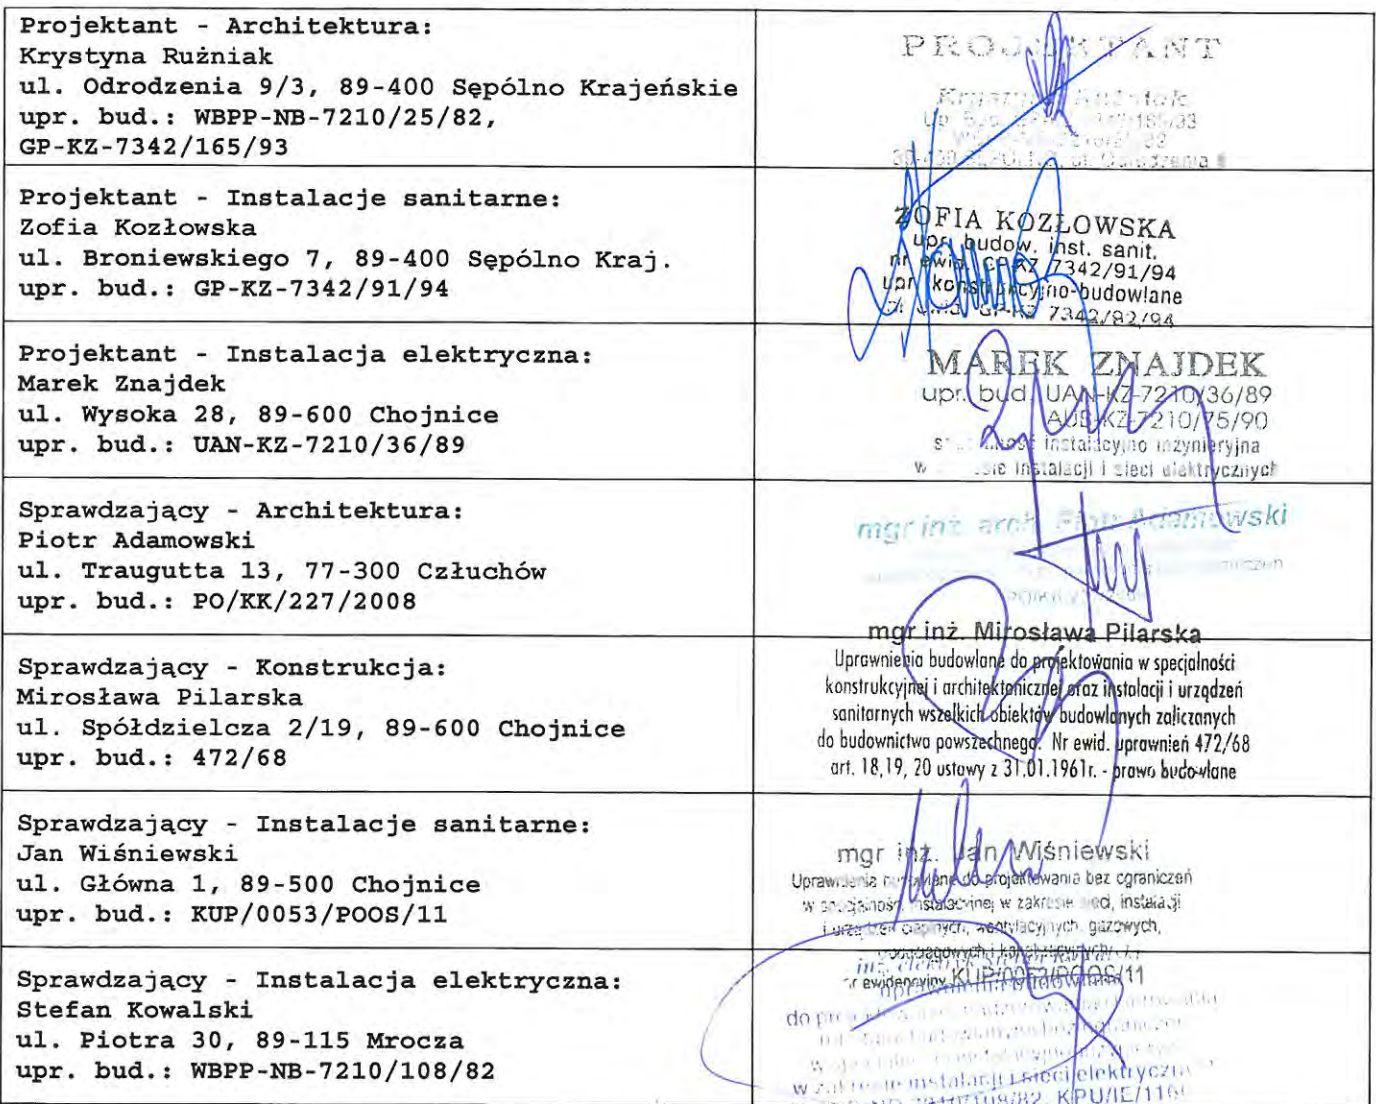 Projektant - Architektura:
Krystyna Rużniak
ul. Odrodzenia 9/3, 89-400 Sępólno Krajeńskie
upr. bud.: WBPP-NB-7210/25/82,
GP-KZ-7342/165/93
PROJEKTANT
Projektant - Instalacje sanitarne:
Zofia Kozłowska
ul. Broniewskiego 7, 89-400 Sępólno Kraj.
upr. bud.: GP-KZ-7342/91/94
ZOFIA KOZŁOWSKA
upr. budow. inst. sanit.
nr ewid. GP-KZ 7342/91/94
upr. konstrukcyjno-budowlane
nr ewid. GP-KZ 7342/82/94
Projektant - Instalacja elektryczna:
Marek Znajdek
ul. Wysoka 28, 89-600 Chojnice
upr. bud.: UAN-KZ-7210/36/89
MAREK ZNAJDEK
upr. bud. UAN-KZ-7210/36/89
AUB-KZ-7210/75/90
instalacyjno inżynieryjna
w instalacji i sieci elektrycznych
Sprawdzający - Architektura:
Piotr Adamowski
ul. Traugutta 13, 77-300 Człuchów
upr. bud.: PO/KK/227/2008
mgr inż. arch. Piotr Adamowski
Sprawdzający - Konstrukcja:
Mirosława Pilarska
ul. Spółdzielcza 2/19, 89-600 Chojnice
upr. bud.: 472/68
mgr inż. Mirosława Pilarska
Uprawnienia budowlane do projektowania w specjalności
konstrukcyjnej i architektonicznej oraz instalacji i urządzeń
sanitarnych wszelkich obiektów budowlanych zaliczanych
do budownictwa powszechnego. Nr ewid. uprawnień 472/68
art. 18,19, 20 ustawy z 31.01.1961r. - prawo budowlane
Sprawdzający - Instalacje sanitarne:
Jan Wiśniewski
ul. Główna 1, 89-500 Chojnice
upr. bud.: KUP/0053/POOS/11
mgr inż. Jan Wiśniewski
Uprawnienia budowlane do projektowania bez ograniczeń
w specjalności instalacyjnej w zakresie sieci, instalacji
i urządzeń cieplnych, wentylacyjnych, gazowych,
wodociągowych i kanalizacyjnych
nr ewidencyjny KUP/0053/POOS/11
Sprawdzający - Instalacja elektryczna:
Stefan Kowalski
ul. Piotra 30, 89-115 Mrocza
upr. bud.: WBPP-NB-7210/108/82
inż. elektryk
uprawnienia budowlane
w zakresie instalacji i sieci elektryczn
7210/108/82, KPU/IE/116